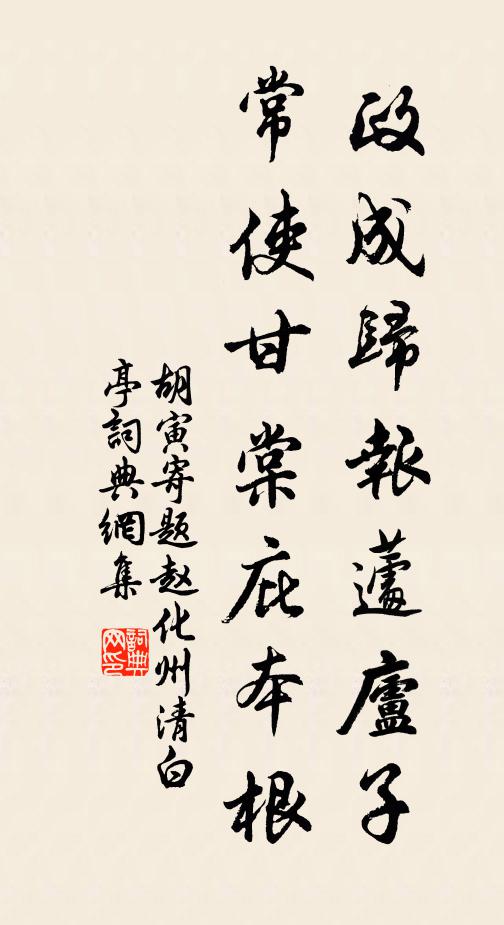 政成歸報蘧廬子
常使甘棠庇本根
胡寅寄題赵化州清白
亭詞典網集
詞典
网印